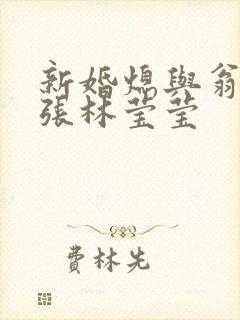 新婚熄與翁
張林莹莹
費林先